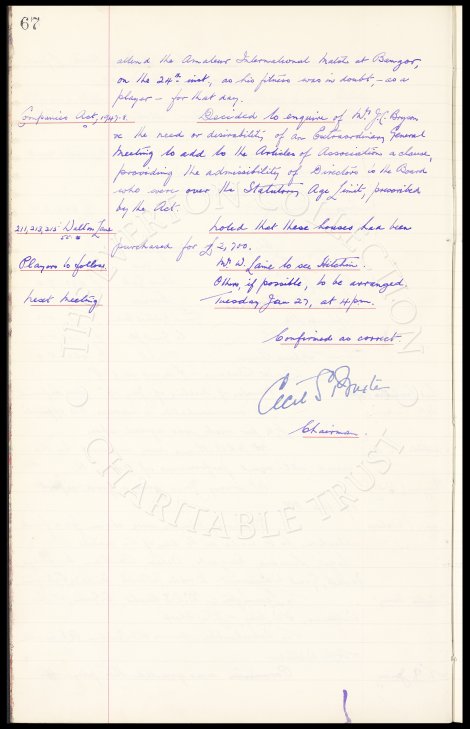 67
attend the Amateur International Match at Bangor,
on the 24th inst., as his fitness was in doubt, - as a
player - for that day.
Companies Act, 1947-8. Decided to enquire of Mr. J.C. Bryson
re the need or desirability of an Extraordinary General
Meeting to add to the Articles of Association a clause,
providing the admissibility of Directors to the Board
who were over the Statutory Age Limit, prescribed
by the Act.
211, 213, 215 Walton Lane noted that these houses had been
purchased for £2,700.
Players to follow. Mr. W. Laine to see Hitchin.
Others, if possible, to be arranged.
Next Meeting Tuesday Jan 27, at 4 pm.
Confirmed as correct
Cecil S. Baxter
Chairman.
THE EVERTON COLLECTION
CHARITABLE TRUST